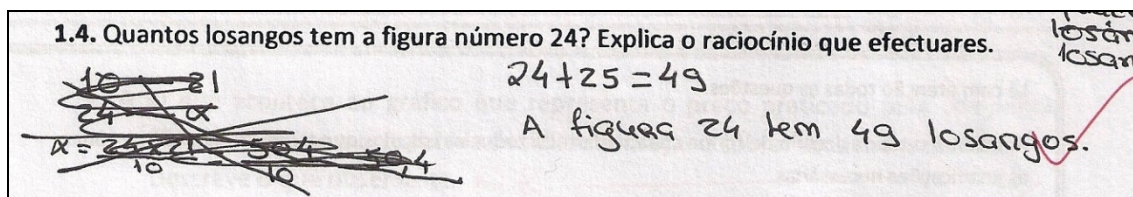 1.4. Quantos losangos tem a figura número 24? Explica o raciocínio que efectuares.
10 — 21
24 — x
x = 24x21 = 504 = 50,4
10 10
24+25=49
A figura 24 tem 49 losangos.